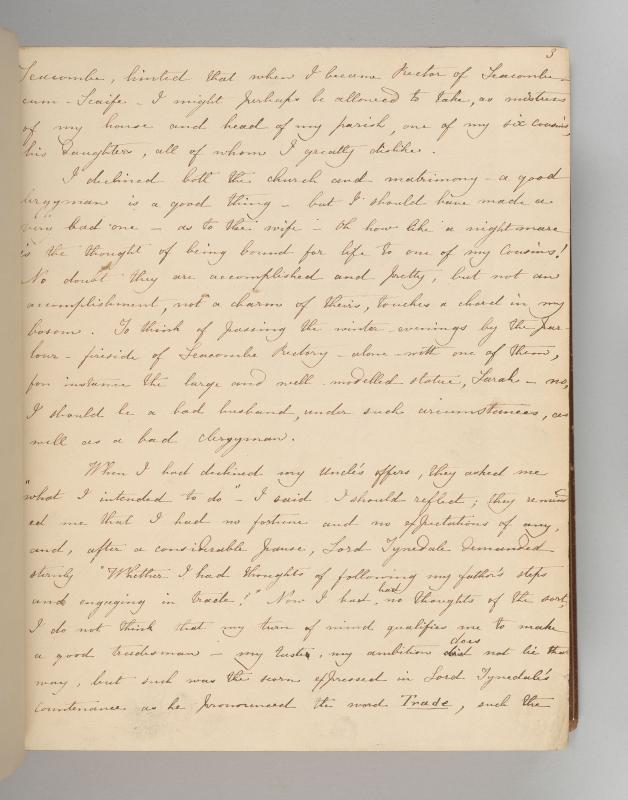 3
Seacombe, hinted that when I became Rector of Seacombe-
cum-Scaife - I might perhaps be allowed to take, as mistress
of my house and head of my parish, one of my six cousins,
his daughters, all of whom I greatly dislike.
I declined both the church and matrimony - a good
clergyman is a good thing - but I should have made a
very bad one - as to the wife - Oh how like a night-mare
is the thought of being bound for life to one of my Cousins!
No doubt they are accomplished and pretty, but not an
accomplishment, not a charm of theirs, touches a chord in my
bosom. To think of passing the winter-evenings by the par-
lour-fireside of Seacombe Rectory - alone - with one of them,
for instance the large and well-modelled statue, Sarah - no,
I should be a bad husband, under such circumstances, as
well as a bad clergyman.
When I had declined my Uncle's offers, they asked me
"what I intended to do" - I said I should reflect; they remind
ed me that I had no fortune and no expectations of any,
and, after a considerable pause, Lord Tynedale demanded
sternly "Whether I had thoughts of following my father's steps
and engaging in trade?" Now I had had no thoughts of the sort,
I do not think that my turn of mind qualifies me to make
a good tradesman - my taste, my ambition does not lie that
way, but such was the scorn expressed in Lord Tynedale's
countenance as he pronounced the word Trade, such the